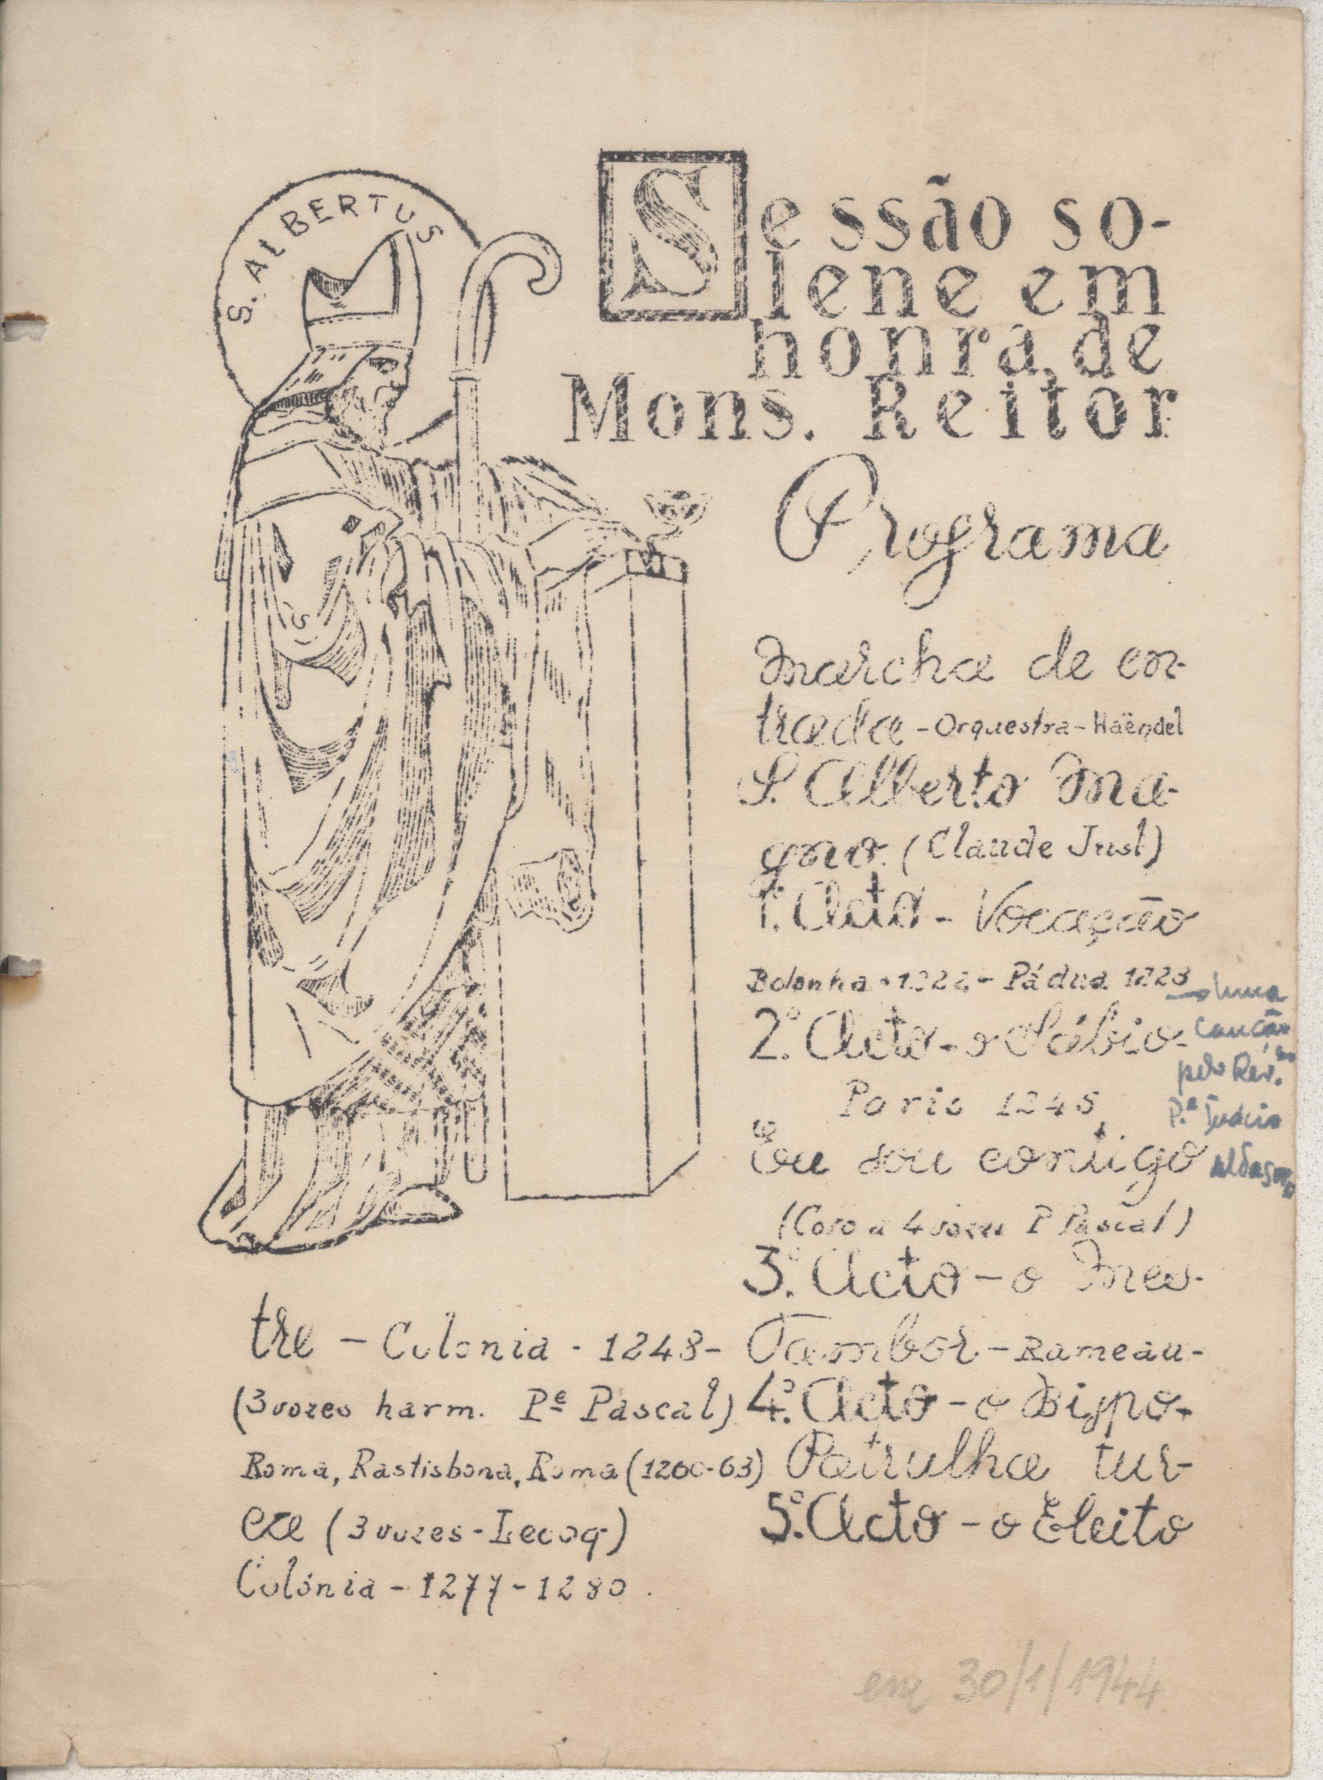 S. ALBERTUS
Sessão so-
lene em
honra de
Mons. Reitor
Programa
Marcha de en-
trada - Orquestra - Haëndel
S. Alberto Ma-
gno. (Claude Jusl)
1.º Acto - Vocação
Bolonha - 1222 - Pádua 1223
2.º Acto - o Sábio -
→ huma
canção
pelo Rev.mo
P.e Inácio
Aldasoro
Paris 1245
Eu sou contigo
(Coro a 4 vozes P. Pascal)
3.º Acto - o Mes-
tre - Colonia - 1248 -
Tambor - Rameau -
(3 vozes harm. Pe Pascal)
4.º Acto - o Bispo -
Roma, Rastisbona, Roma (1260-63)
Patrulha tur-
ca (3 vozes - Lecoq)
5.º Acto - o Eleito
Colónia - 1277 - 1280.
em 30/1/1944